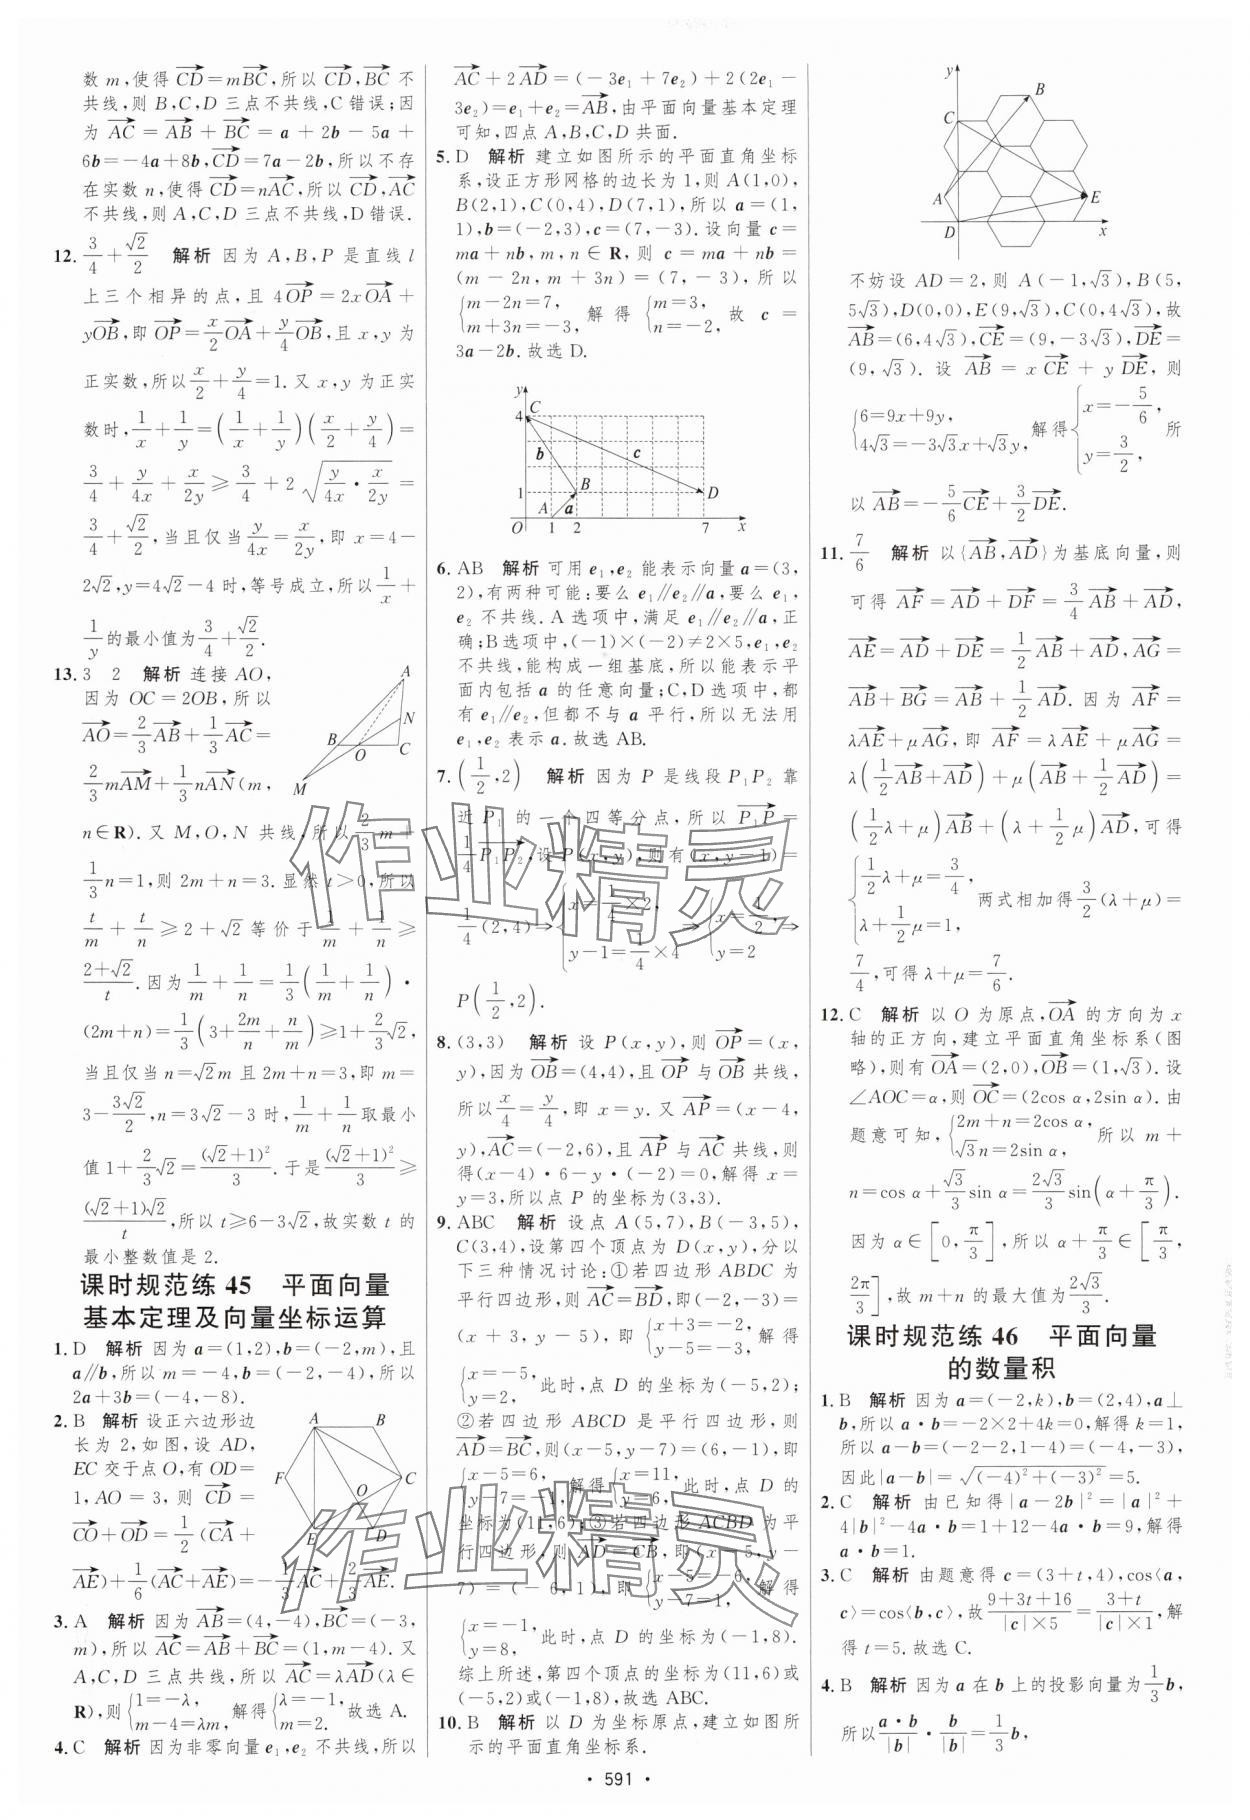 数 m,使得 CD=mBC,所以 CD,BC 不
共线,则 B,C,D 三点不共线,C 错误;因
为 AC = AB + BC = a + 2b - 5a +
6b=-4a+8b,CD=7a-2b,所以不存
在实数 n,使得 CD=nAC,所以 CD,AC
不共线,则 A,C,D 三点不共线,D 错误.
12. 3/4+√2/2 解析 因为 A,B,P 是直线 l
上三个相异的点,且 4OP=2xOA+
yOB,即 OP=x/2 OA+y/4 OB,且 x,y 为
正实数,所以 x/2+y/4=1.又 x,y 为正实
数时,1/x+1/y=(1/x+1/y)(x/2+y/4)=
3/4+y/4x+x/2y≥3/4+2√(y/4x·x/2y)=
3/4+√2/2,当且仅当 y/4x=x/2y,即 x=4-
2√2,y=4√2-4 时,等号成立,所以 1/x+
1/y 的最小值为 3/4+√2/2.
13. 3 2 解析 连接 AO,
因为 OC=2OB,所以
AO=2/3 AB+1/3 AC=
2/3 mAM+1/3 nAN(m,
n∈R).又 M,O,N 共线,所以 2/3 m+
1/3 n=1,则 2m+n=3.显然 t>0,所以
t/m+t/n≥2+√2 等价于 1/m+1/n≥
(2+√2)/t.因为 1/m+1/n=1/3(1/m+1/n)·
(2m+n)=1/3(3+2m/n+n/m)≥1+2/3√2,
当且仅当 n=√2m 且 2m+n=3,即 m=
3-3√2/2,n=3√2-3 时,1/m+1/n取最小
值 1+2/3√2=(√2+1)²/3.于是(√2+1)²/3≥
(√2+1)√2/t,所以 t≥6-3√2,故实数 t 的
最小整数值是 2.
A
B
O
N
C
M
课时规范练 45 平面向量
基本定理及向量坐标运算
1. D 解析 因为 a=(1,2),b=(-2,m),且
a∥b,所以 m=-4,b=(-2,-4),所以
2a+3b=(-4,-8).
2. B 解析 设正六边形边
长为 2,如图,设 AD,
EC 交于点 O,有 OD=
1,AO = 3,则 CD =
CO+OD=1/2(CA+
AE)+1/6(AC+AE)=-1/3 AC+2/3 AE.
A
B
F
C
O
E
D
3. A 解析 因为 AB=(4,-4),BC=(-3,
m),所以 AC=AB+BC=(1,m-4).又
A,C,D 三点共线,所以 AC=λAD(λ∈
R),则{1=-λ, m-4=λm,解得{λ=-1, m=2. 故选 A.
4. C 解析 因为非零向量 e₁,e₂ 不共线,所以
AC + 2AD = (-3e₁ + 7e₂) + 2(2e₁ -
3e₂)=e₁+e₂=AB,由平面向量基本定理
可知,四点 A,B,C,D 共面.
5. D 解析 建立如图所示的平面直角坐标
系,设正方形网格的边长为 1,则 A(1,0),
B(2,1),C(0,4),D(7,1),所以 a=(1,
1),b=(-2,3),c=(7,-3).设向量 c=
ma + nb,m,n ∈ R,则 c = ma + nb =
(m - 2n,m + 3n) = (7,-3),所以
{m-2n=7, m+3n=-3,解得{m=3, n=-2, 故 c =
3a-2b.故选 D.
y
4
C
b
c
B
D
1
A
a
O
1
2
7
x
6. AB 解析 可用 e₁,e₂ 能表示向量 a=(3,
2),有两种可能:要么 e₁∥e₂∥a,要么 e₁,
e₂ 不共线.A 选项中,满足 e₁∥e₂∥a,正
确;B 选项中,(-1)×(-2)≠2×5,e₁,e₂
不共线,能构成一组基底,所以能表示平
面内包括 a 的任意向量;C,D 选项中,都
有 e₁∥e₂,但都不与 a 平行,所以无法用
e₁,e₂ 表示 a.故选 AB.
7. (1/2,2) 解析 因为 P 是线段 P₁P₂ 靠
近 P₁ 的一个四等分点,所以 P₁P=
1/4 P₁P₂,设 P(x,y),则有(x,y-1)=
1/4(2,4)→{x=1/4×2, y-1=1/4×4→{x=1/2, y=2→
P(1/2,2).
8. (3,3) 解析 设 P(x,y),则 OP=(x,
y),因为 OB=(4,4),且 OP 与 OB 共线,
所以 x/4=y/4,即 x=y.又 AP=(x-4,
y),AC=(-2,6),且 AP 与 AC 共线,则
得(x-4)·6-y·(-2)=0,解得 x=
y=3,所以点 P 的坐标为(3,3).
9. ABC 解析 设点 A(5,7),B(-3,5),
C(3,4),设第四个顶点为 D(x,y),分以
下三种情况讨论:①若四边形 ABDC 为
平行四边形,则 AC=BD,即(-2,-3)=
(x+3,y-5),即{x+3=-2, y-5=-3,解得
{x=-5, y=2, 此时,点 D 的坐标为(-5,2);
②若四边形 ABCD 是平行四边形,则
AD=BC,则(x-5,y-7)=(6,-1),即
{x-5=6, y-7=-1,解得{x=11, y=6, 此时,点 D 的
坐标为(11,6);③若四边形 ACBD 为平
行四边形,则 AD=CB,即(x-5,y-
7)=(-6,1),即{x-5=-6, y-7=1, 解得
{x=-1, y=8, 此时,点 D 的坐标为(-1,8).
综上所述,第四个顶点的坐标为(11,6)或
(-5,2)或(-1,8),故选 ABC.
10. B 解析 以 D 为坐标原点,建立如图所
示的平面直角坐标系.
y
B
C
A
E
D
x
不妨设 AD=2,则 A(-1,√3),B(5,
5√3),D(0,0),E(9,√3),C(0,4√3),故
AB=(6,4√3),CE=(9,-3√3),DE=
(9,√3).设 AB = xCE + yDE,则
{6=9x+9y, 4√3=-3√3x+√3y,解得{x=-5/6, y=3/2, 所
以 AB=-5/6 CE+3/2 DE.
11. 7/6 解析 以{AB,AD}为基底向量,则
可得 AF=AD+DF=3/4 AB+AD,
AE=AD+DE=1/2 AB+AD,AG=
AB+BG=AB+1/2 AD.因为 AF=
λAE+μAG,即 AF=λAE+μAG=
λ(1/2 AB+AD)+μ(AB+1/2 AD)=
(1/2 λ+μ)AB+(λ+1/2 μ)AD,可得
{1/2 λ+μ=3/4, λ+1/2 μ=1, 两式相加得3/2(λ+μ)=
7/4,可得 λ+μ=7/6.
12. C 解析 以 O 为原点,OA 的方向为 x
轴的正方向,建立平面直角坐标系(图
略),则有 OA=(2,0),OB=(1,√3).设
∠AOC=α,则 OC=(2cos α,2sin α).由
题意可知,{2m+n=2cos α, √3n=2sin α, 所以 m +
n=cos α+√3/3 sin α=2√3/3 sin(α+π/3).
因为 α∈[0,π/3],所以 α+π/3∈[π/3,
2π/3],故 m+n 的最大值为2√3/3.
课时规范练 46 平面向量
的数量积
1. B 解析 因为 a=(-2,k),b=(2,4),a⊥
b,所以 a·b=-2×2+4k=0,解得 k=1,
所以 a-b=(-2-2,1-4)=(-4,-3),
因此|a-b|=√((-4)²+(-3)²)=5.
2. C 解析 由已知得|a-2b|²=|a|²+
4|b|²-4a·b=1+12-4a·b=9,解得
a·b=1.
3. C 解析 由题意得 c=(3+t,4),cos⟨a,
c⟩=cos⟨b,c⟩,故(9+3t+16)/(|c|×5)=(3+t)/(|c|×1),解
得 t=5.故选 C.
4. B 解析 因为 a 在 b 上的投影向量为1/3 b,
所以 a·b/|b|·b/|b|=1/3 b,
· 591 ·
作业精灵
作业精灵